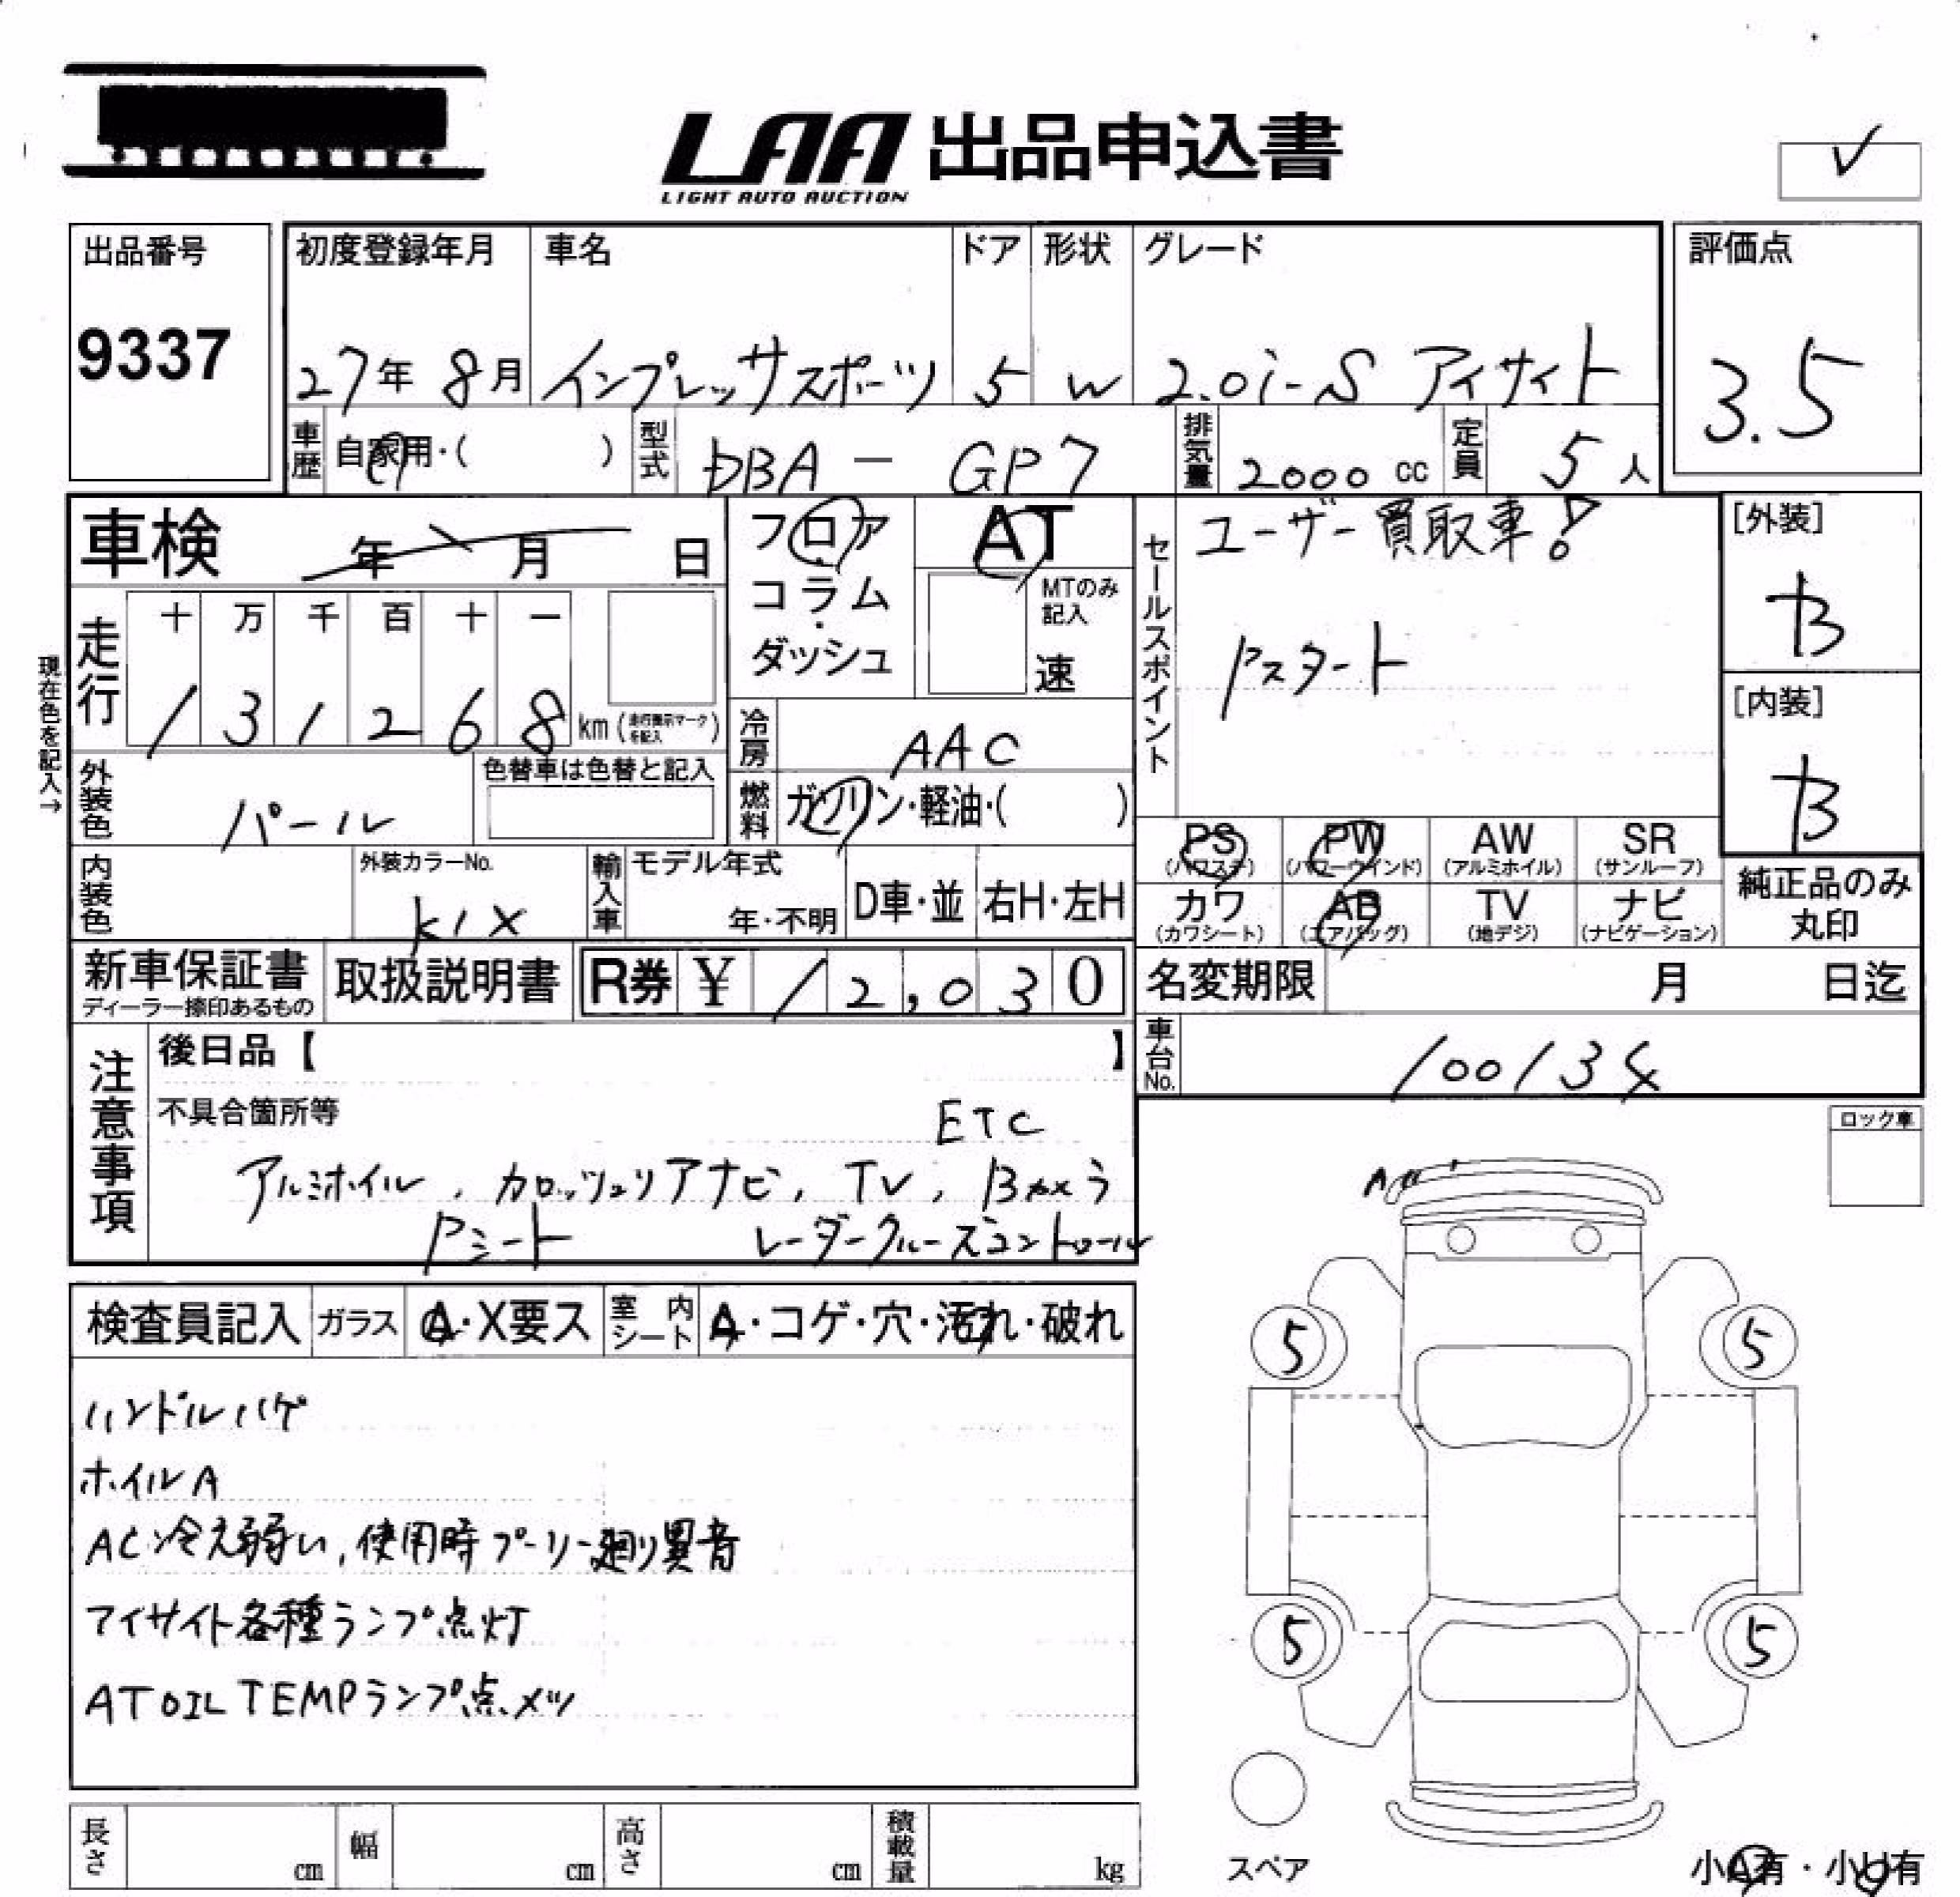 LAA 出品申込書
LIGHT AUTO AUCTION
✓
出品番号
9337
初度登録年月
27年 8月
車名
インプレッサスポーツ
ドア
5
形状
W
グレード
2.0i-S アイサイト
評価点
3.5
車歴 自家用・( )
型式 DBA - GP7
排気量 2000 cc
定員 5 人
車検 年 月 日
フロア・コラム・ダッシュ
AT
MTのみ記入
速
セールスポイント
ユーザー買取車!
Pスタート
[外装]
B
[内装]
B
現在色を記入→
走行
十 万 千 百 十 一
1 3 1 2 6 8 km (走行表示マークを記入)
冷房 AAC
燃料 ガソリン・軽油・( )
外装色 パール
色替車は色替と記入
内装色
外装カラーNo.
K1X
輸入車
モデル年式
年・不明
D車・並
右H・左H
PS (パワステ)
PW (パワーウインド)
AW (アルミホイル)
SR (サンルーフ)
カワ (カワシート)
AB (エアバッグ)
TV (地デジ)
ナビ (ナビゲーション)
純正品のみ丸印
新車保証書
ディーラー捺印あるもの
取扱説明書
R券 ¥ 12,030
名変期限 月 日迄
車台No. 100134
注意事項
後日品【 】
不具合箇所等
ETC
アルミホイル, カロッツェリアナビ, TV, Bカメラ
Pシート レーダークルーズコントロール
ロック車
A
検査員記入 ガラス A・X要ス 室内シート A・コゲ・穴・汚れ・破れ
ハンドルハゲ
ホイルA
AC冷え弱い, 使用時プーリー廻り異音
アイサイト各種ランプ点灯
AT OIL TEMPランプ点メツ
5 5
5 5
スペア
小A有・小U有
長さ cm 幅 cm 高さ cm 積載量 kg